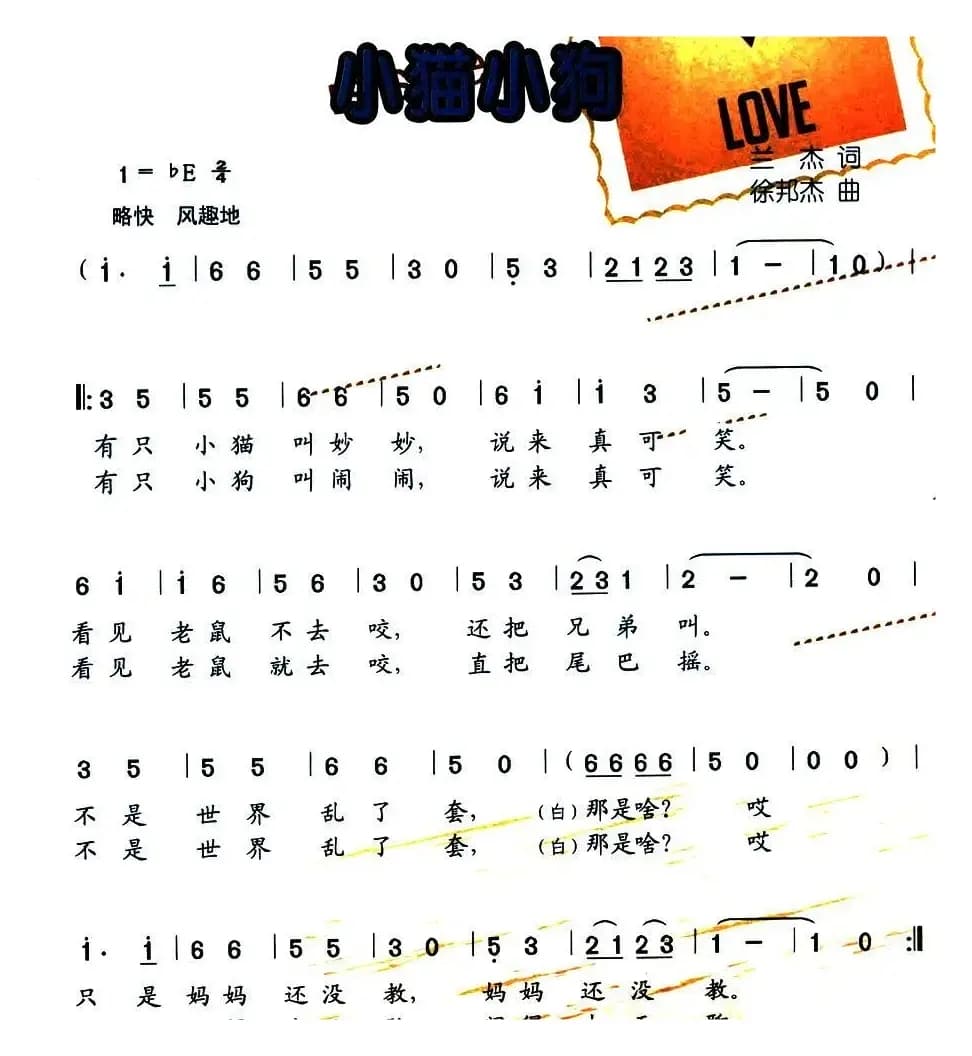 小猫小狗
LOVE
1 = ♭E 2/4
兰 杰 词
徐邦杰 曲
略快 风趣地
( i· i | 6 6 | 5 5 | 3 0 | 5̣ 3 | 2 1 2 3 | 1 – | 1 0 ) |
‖: 3 5 | 5 5 | 6 6 | 5 0 | 6 i | i 3 | 5 – | 5 0 |
有只 小猫 叫妙 妙, 说来 真可 笑。
有只 小狗 叫闹 闹, 说来 真可 笑。
6 i | i 6 | 5 6 | 3 0 | 5 3 | 2 3 1 | 2 – | 2 0 |
看见 老鼠 不去 咬, 还把 兄弟 叫。
看见 老鼠 就去 咬, 直把 尾巴 摇。
3 5 | 5 5 | 6 6 | 5 0 | ( 6 6 6 6 | 5 0 | 0 0 ) |
不是 世界 乱了 套, (白)那是啥? 哎
不是 世界 乱了 套, (白)那是啥? 哎
i· i | 6 6 | 5 5 | 3 0 | 5̣ 3 | 2 1 2 3 | 1 – | 1 0 :‖
只 是 妈妈 还没 教, 妈妈 还没 教。